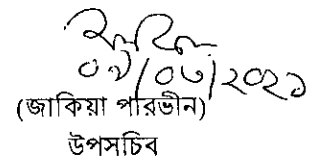 ০৯/০৩/২০২১
(জাকিয়া পারভীন)
উপসচিব